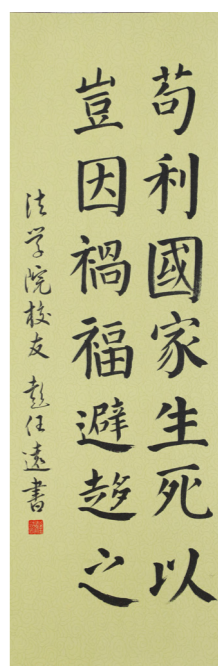 苟利國家生死以
豈因禍福避趍之
法学院校友 彭任遠書